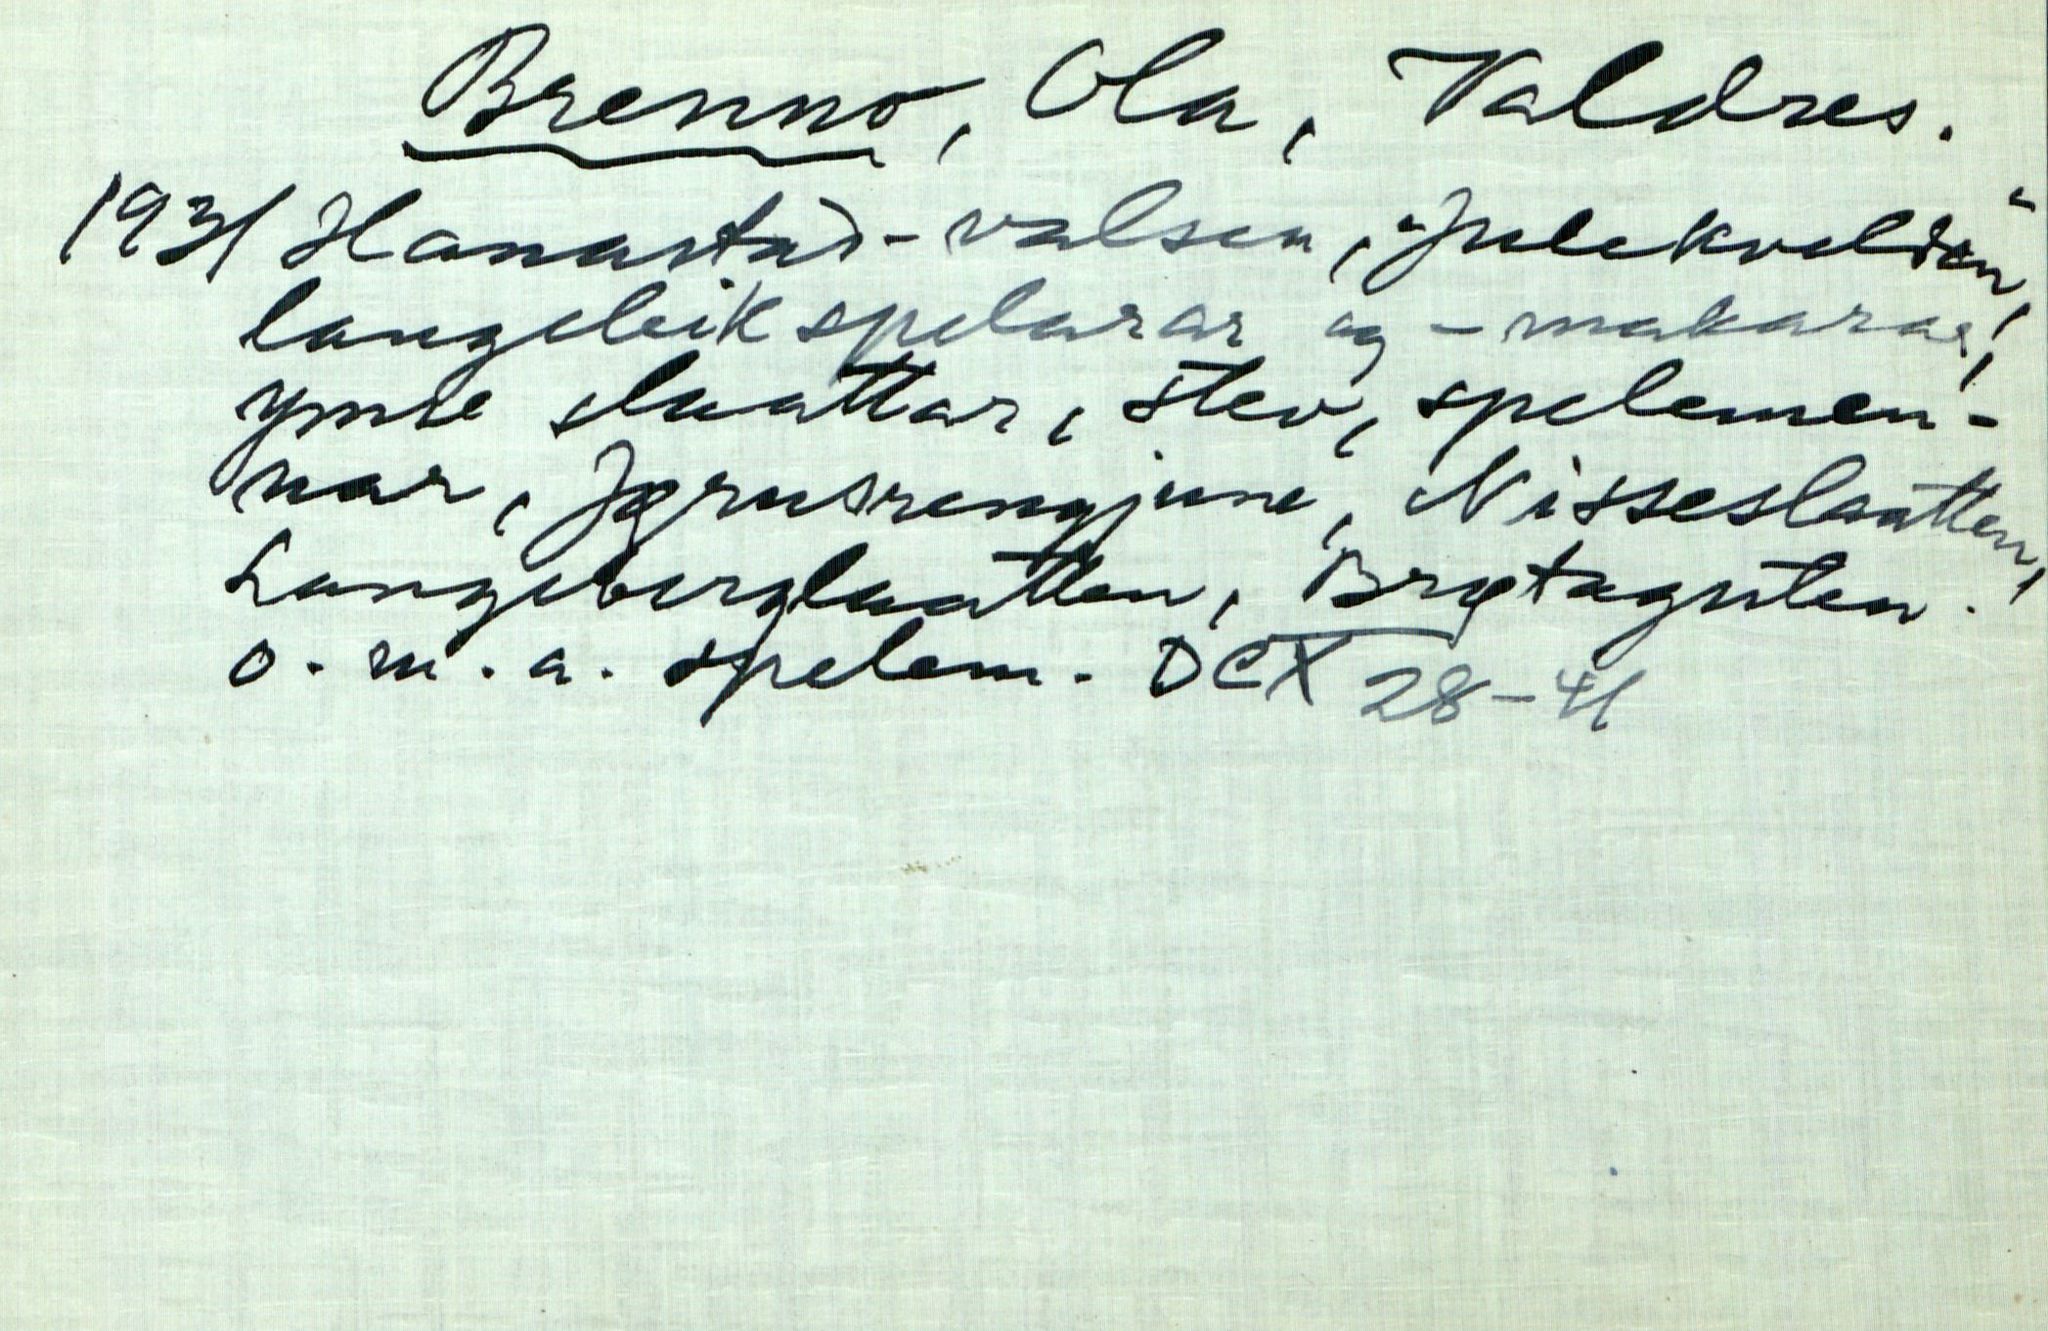 Brenno, Ola, Valdres.
1931 Hanastad-valsen, "Julekvelden",
langeleikspelarar og -makarar,
ymse slaattar, stev, spelemen-
nar, Jørusrengjune, Nisseslaatten,
Langeberglaatten, Brøtaguten.
o.m.a. spelem. DCX 28-41